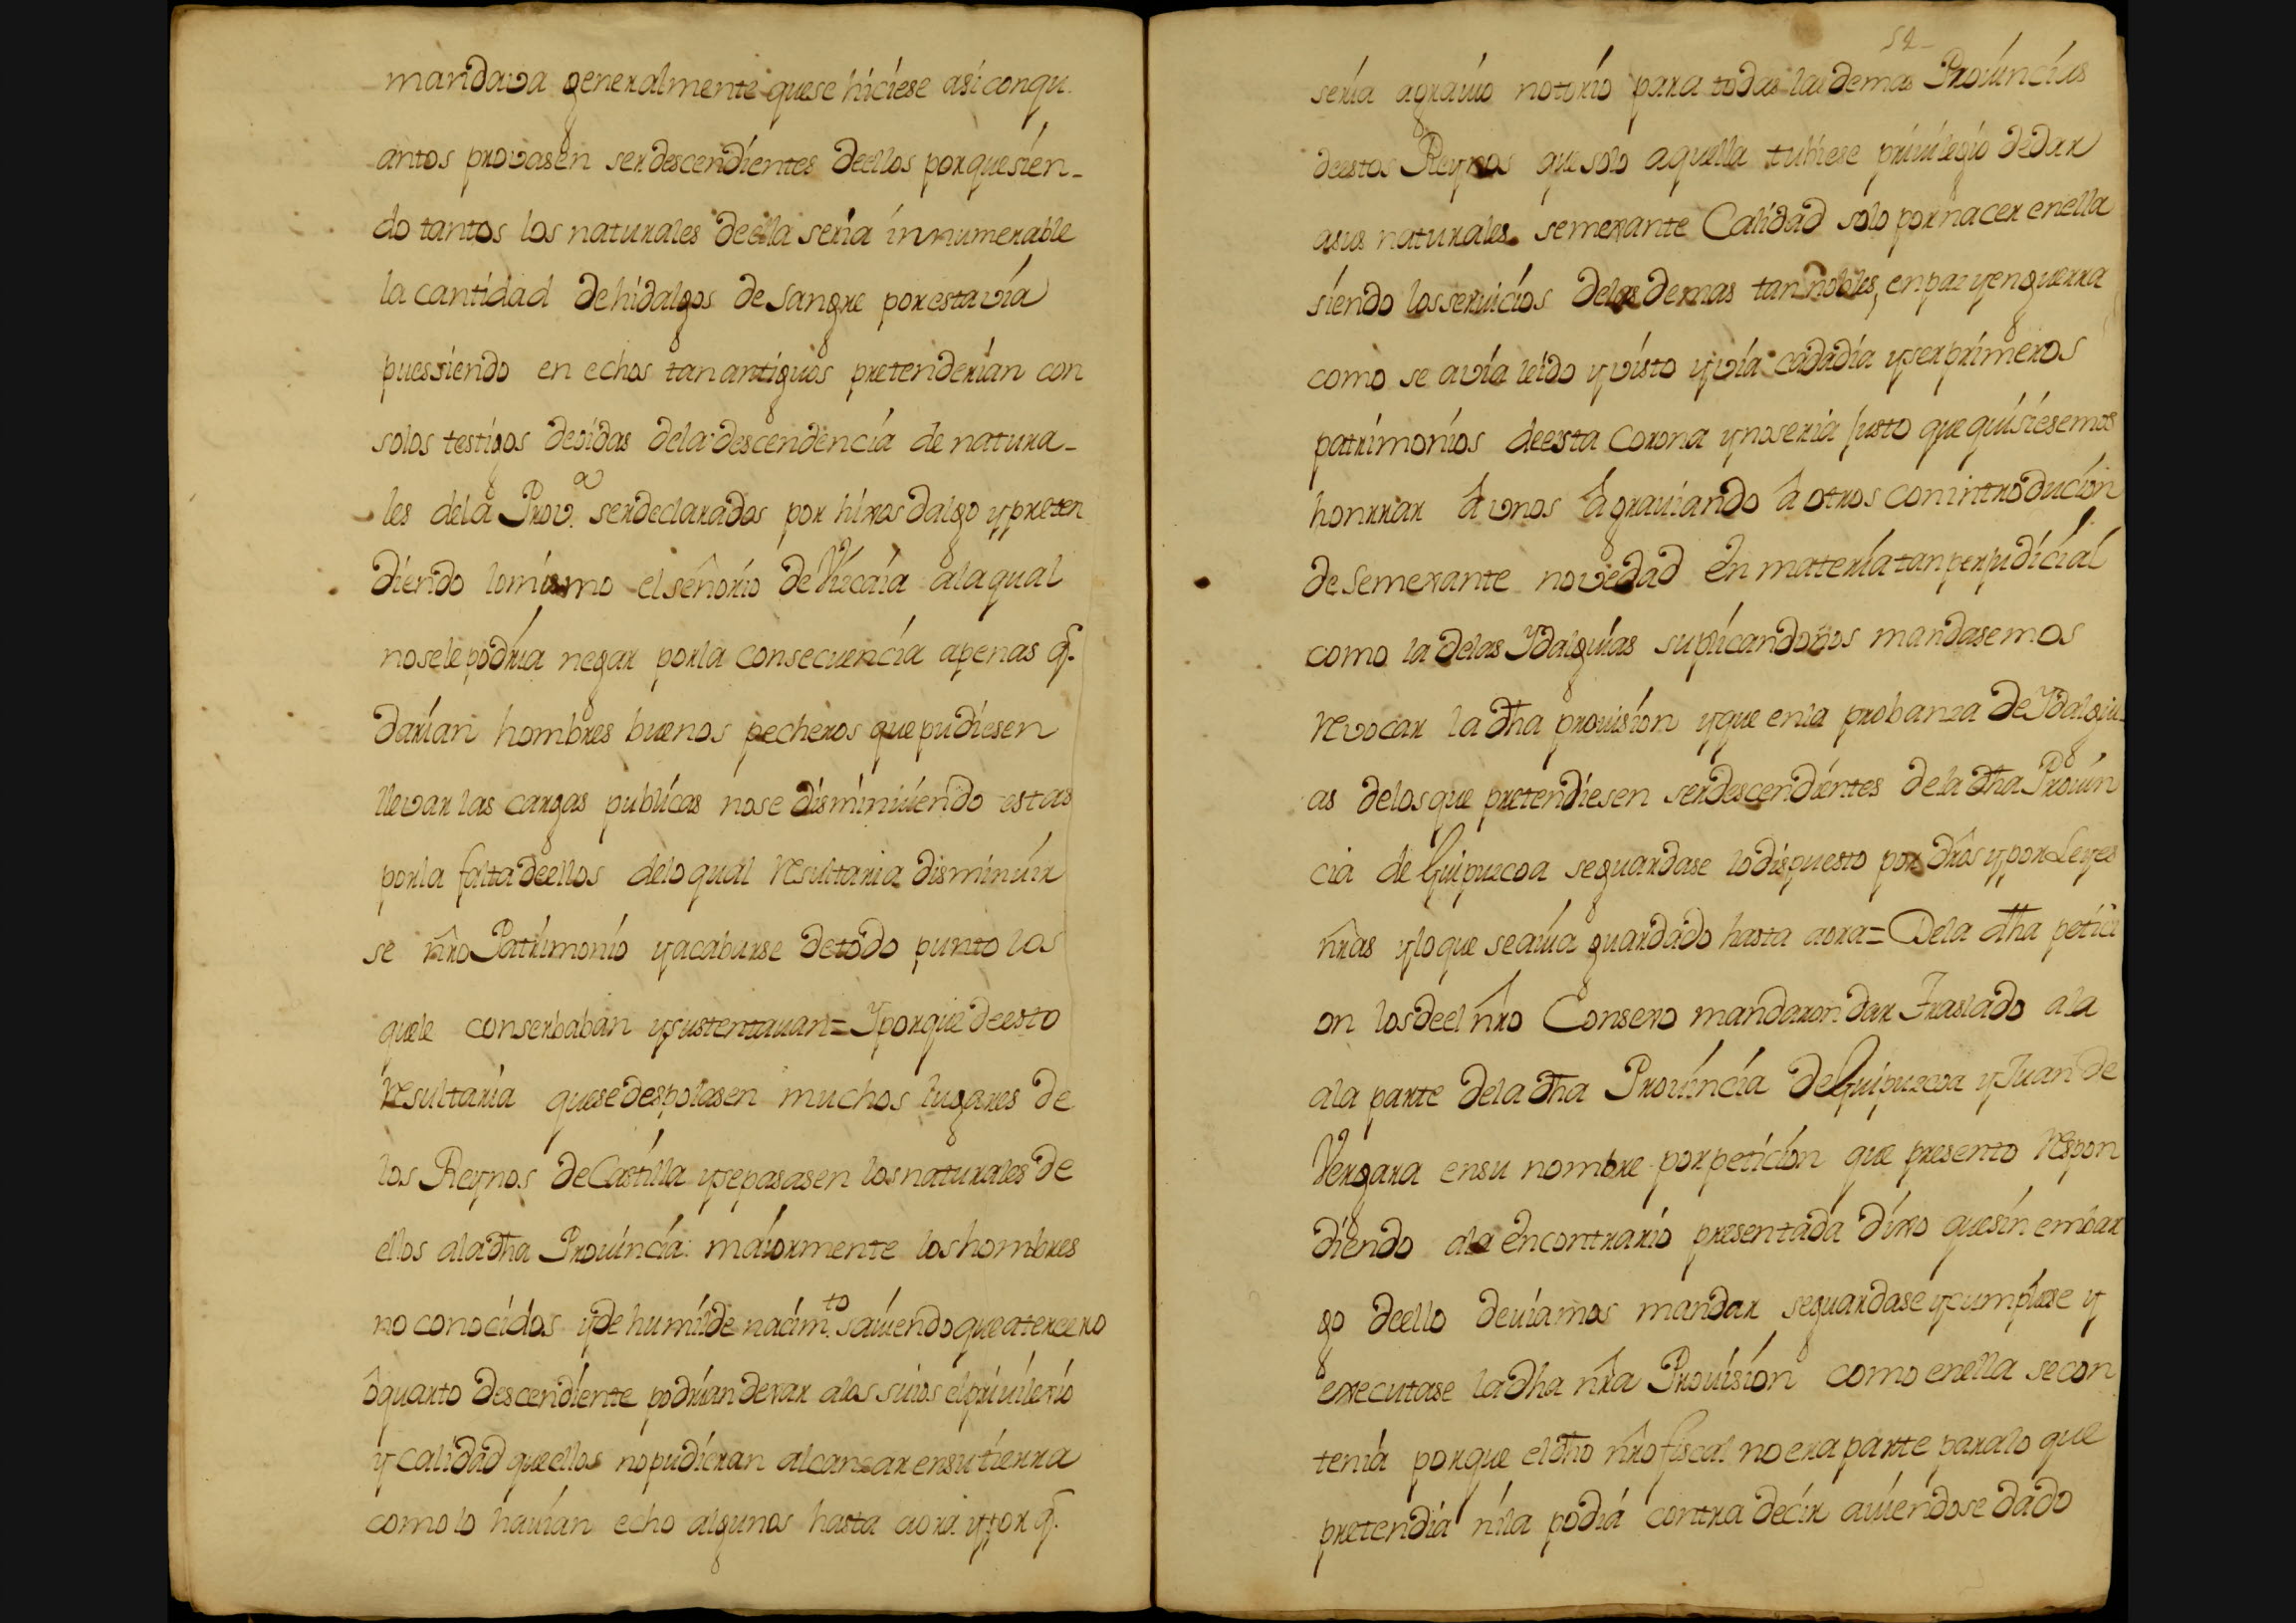 mandava generalmente quese hiciese asi conqu
antos provasen ser descendientes deellos porquesien-
do tantos los naturales deella seria innumerable
la cantidad dehidalgos desangre porestavia
puessiendo en echos tanantiguos pretenderian con
solos testigos deoidas deladescendencia de natura-
les dela Prov.ª serdeclarados por hixosdalgo ypreten
diendo lomismo elseñorio deVizcaia alaqual
noselepodria negar porla consecuencia apenas q.
darian hombres buenos pecheros quepudiesen
llevarlas cargas publicas nose disminuiendo estas
porla faltadeellos deloqual resultaria disminuir
se nro Patrimonio yacabarse detodo punto los
quele conserbaban ysustentauan= Yporque deesto
resultaria quesedespolasen muchos lugares de
los Reynos deCastilla ysepasasen losnaturales de
ellos aladha Prouincia: maiormente loshombres
no conocidos yde humilde nacim.to sauiendoqueatercero
ôquarto descendiente podriandexar alos suios elpriuilexio
y calidad queellos nopudieran alcansarensutierra
comolo hauian echo algunos hasta aora yporq.
52
seria agrauio notorio para todas lasdemas Prouincias
deestos Reynos que solo aquella tubiese priuilegio dedar
asus naturales semexante Calidad solo pornacer enella
siendo losseruicios delasdemas tannobles, enpaz yenguerra
como se avia leido yvisto yvia cadadia yserprimeros
patrimonios deesta Corona ynoseria justo que quisiesemos
honrrar â vnos âgrauiando â otros conintroducion
desemexante novedad en materiatanperjudicial
como la delas Ydalguias suplicandonos mandasemos
revocar la dha prouision yque enla probanza deYdalgui-
as delosque pretendiesen serdescendientes dela dha Prouin
cia de Guipuzcoa seguardase lodispuesto por dros yporLeyes
nras yloque seauia guardado hasta aora= Dela dha petici
on losdeel nro Consexo mandaron dar Traslado ala
ala parte deladha Prouincia deGuipuzcoa yJuan de
Vergara ensu nombre porpeticion que presento respon
diendo ala encontrario presentada dixo quesin embar
go deello deuiamos mandar seguardase ycumpliese y
executase ladha nra Prouision como enella secon
tenia porque eldho nro fiscal noera parte paralo que
pretendia nila podia contradecir auiendose dado